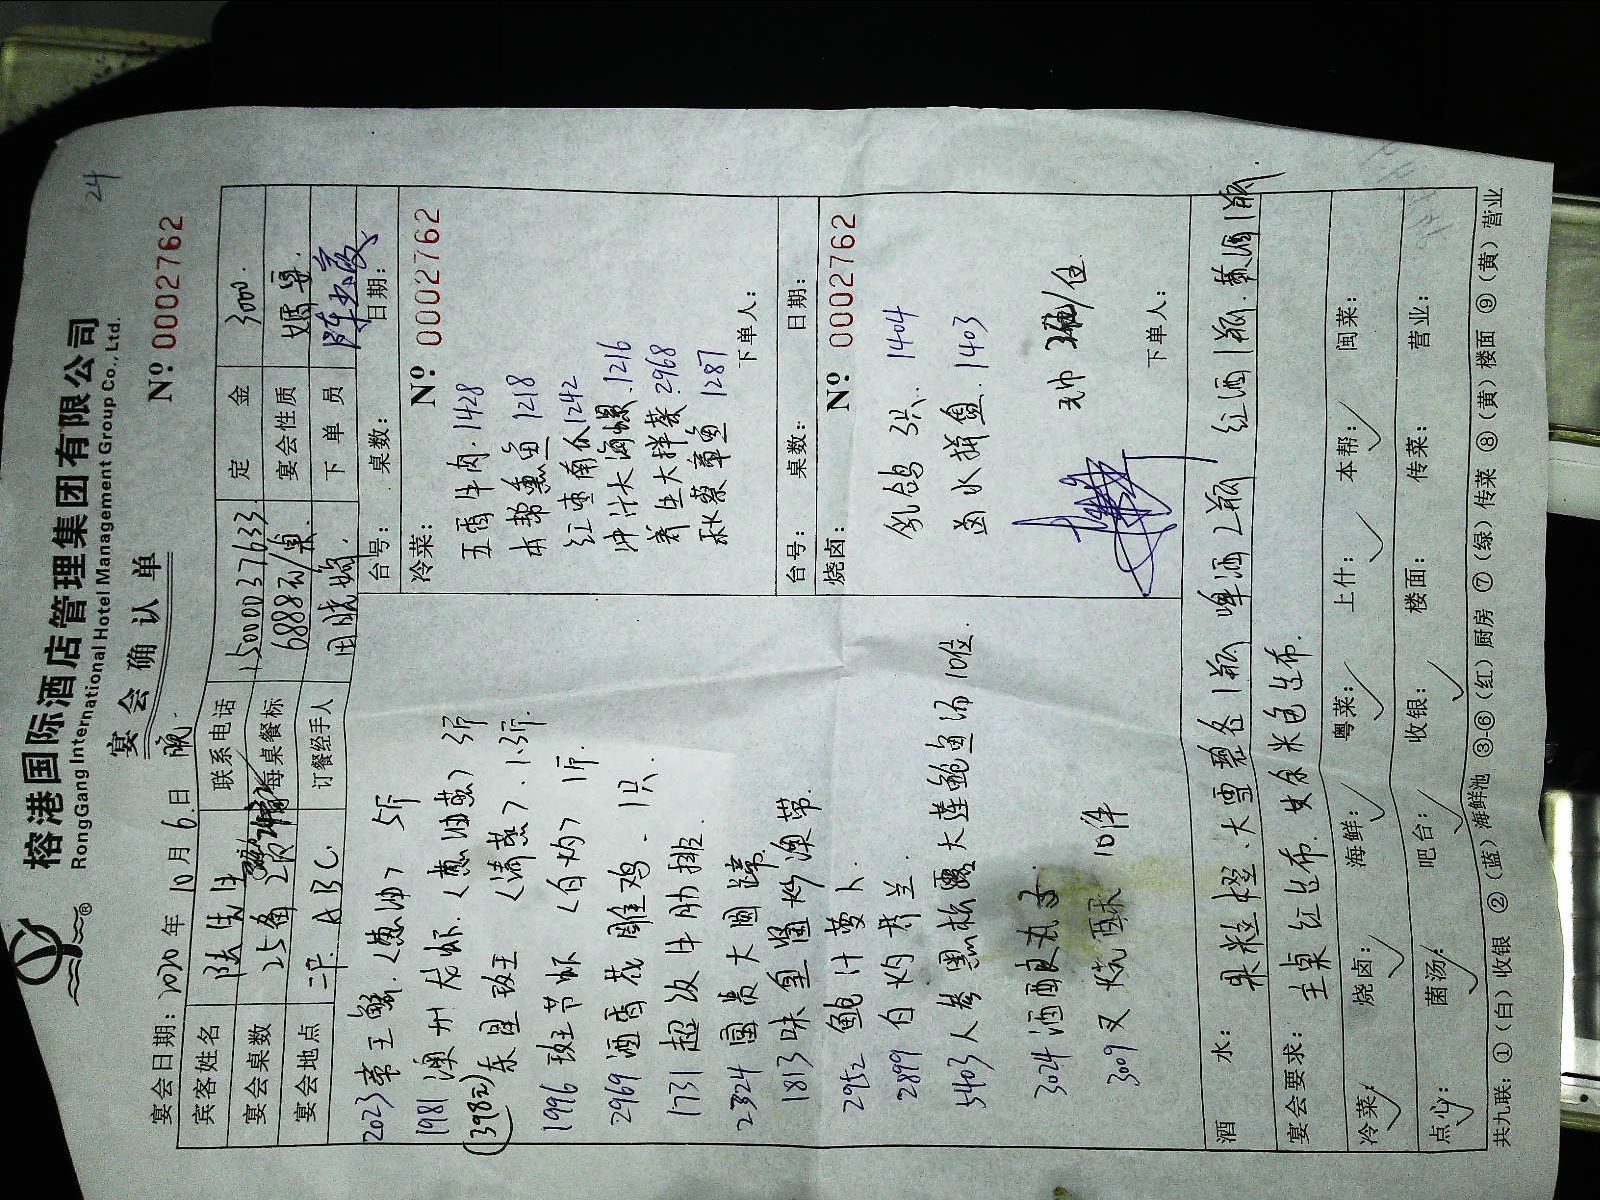 24
榕港国际酒店管理集团有限公司
RongGang International Hotel Management Group Co., Ltd.
®
宴会确认单
Nº 0002762
宴会日期: 2020年 10月 6日 晚
宾客姓名 陆先生 联系电话 15000237633 定金 3000
宴会桌数 25备2 每桌餐标 6888元/桌 宴会性质 婚宴
宴会地点 二平 ABC 订餐经手人 田晓 下单员
2023 帝王蟹(葱油) 5斤
1981 澳洲龙虾(葱油蒸) 3斤
(398元) 东星斑王(清蒸) 1.3斤
1996 斑节虾(白灼) 1斤
2969 酒香花雕鸡 1只
1731 超级牛肋排
2324 圆蹄
1813 味皇酱炒澳带
2952 鲍汁萝卜
2899 白灼芥兰
5403 人参黑松露大莲鲍鱼汤 10位
3024 酒酿丸子
3009 叉烧酥 10件
台号: 桌数: 日期:
冷菜: Nº 0002762
五香牛肉 1428
本帮熏鱼 1218
红枣南瓜 1242
冲汁大海螺 1216
养生大拌菜 2968
秋葵草鱼 1287
下单人:
台号: 桌数: 日期:
烧卤: Nº 0002762
乳鸽 3只 1404
卤水拼盘 1403
毛巾 /位
下单人:
酒水: 果粒橙、大雪碧各1瓶 啤酒2瓶 红酒1瓶、黄酒1瓶
宴会要求: 主桌红台布 其余米色台布
冷菜: 烧卤: 海鲜: 粤菜: 上什: 本帮: 闽菜:
点心: 菌汤: 吧台: 收银: 楼面: 传菜: 营业:
共九联: ①(白)收银 ②(蓝)海鲜池 ③-⑥(红)厨房 ⑦(绿)传菜 ⑧(黄)楼面 ⑨(黄)营业